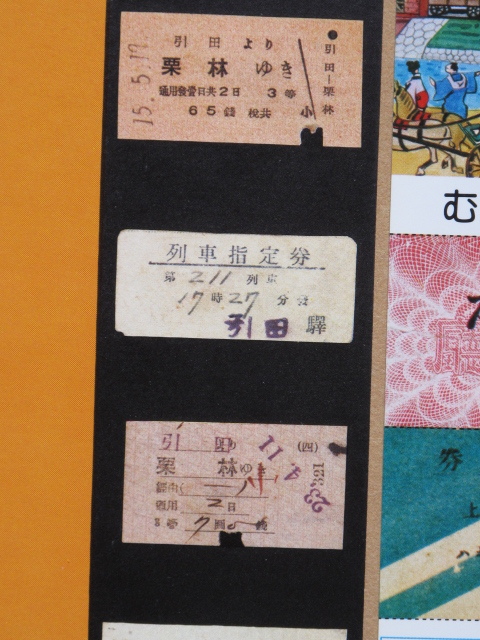 15.5.17
引田より
栗林ゆき
通用發賣日共2日 3等
65錢 税共 小
引田—栗林
列車指定券
第211列車
17時27分発
引田驛
引田より
(四)
栗林ゆき
経由
通用 2日
3等 7圓
1231
む
券
上